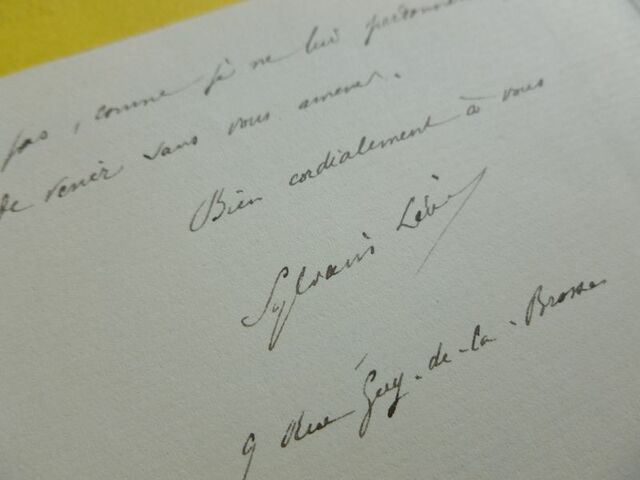 pas, comme je ne lui pardonne
de venir sans vous amener.
Bien cordialement à vous
Sylvain Lévi
9 Rue Guy-de-la-Brosse